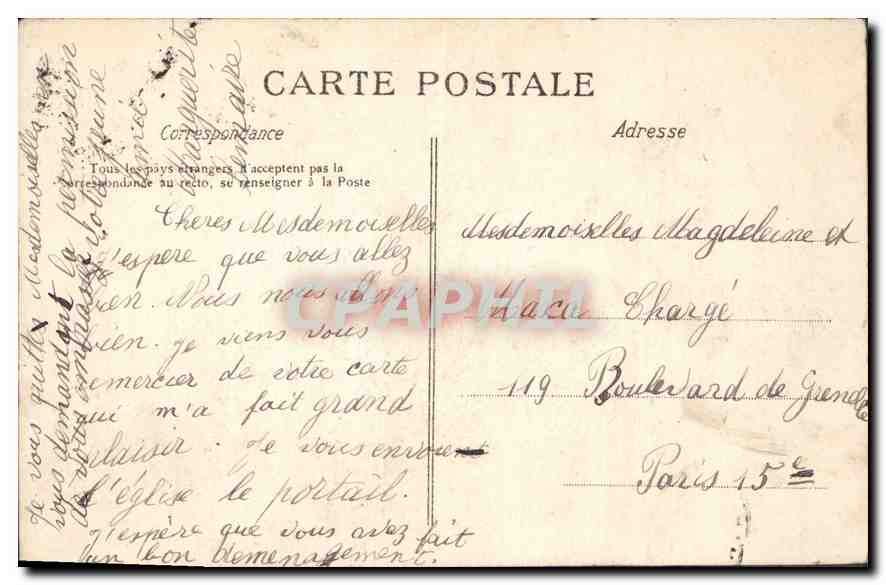 CARTE POSTALE
Correspondance
Tous les pays étrangers n'acceptent pas la
correspondance au recto, se renseigner à la Poste
Cheres Mesdemoiselles
j'espere que vous allez
bien. Nous nous allons
bien. je viens vous
remercier de votre carte
qui m'a fait grand
plaisir. Je vous envoie
l'église le portail.
j'espère que vous avez fait
un bon demenagement.
Je vous quitte Mesdemoiselles en
vous demandant la permission
de vous embrasser Votre jeune
amie
Marguerite
Lemaire
Adresse
Mesdemoiselles Magdeleine et
Chargé
119 Boulevard de Grenelle
Paris 15e
CPAPHIL